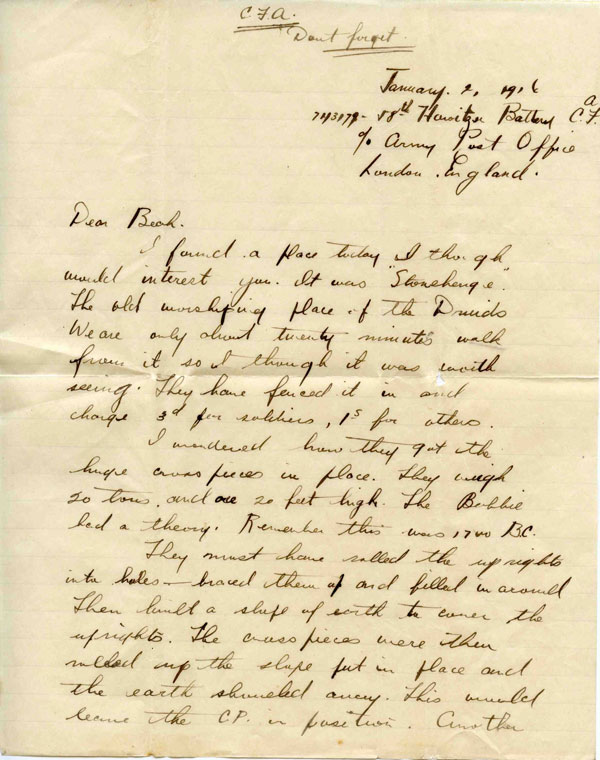 C.F.A.
Don't forget.
January. 2, 1916
Howitzer Battery C.F.A
c/o Army Post Office
London. England.
Dear Beah.
I found a place today I though
would interest you. It was "Stonehenge".
The old worshiping place of the Druids
We are only about twenty minutes walk
from it so I though it was worth
seeing. They have fenced it in and
charge 3d for soldiers, 1s for others.
I wondered how they got the
huge crosspieces in place. They weigh
20 tons, and are 20 feet high. The Bobbie
had a theory. Remember this was 1700 B.C.
They must have rolled the uprights
into holes - braced them up and filled in around
Then built a slope of earth to cover the
uprights. The crosspieces were then
rolled up the slope put in place and
the earth shoveled away. This would
leave the CP. in position. Another